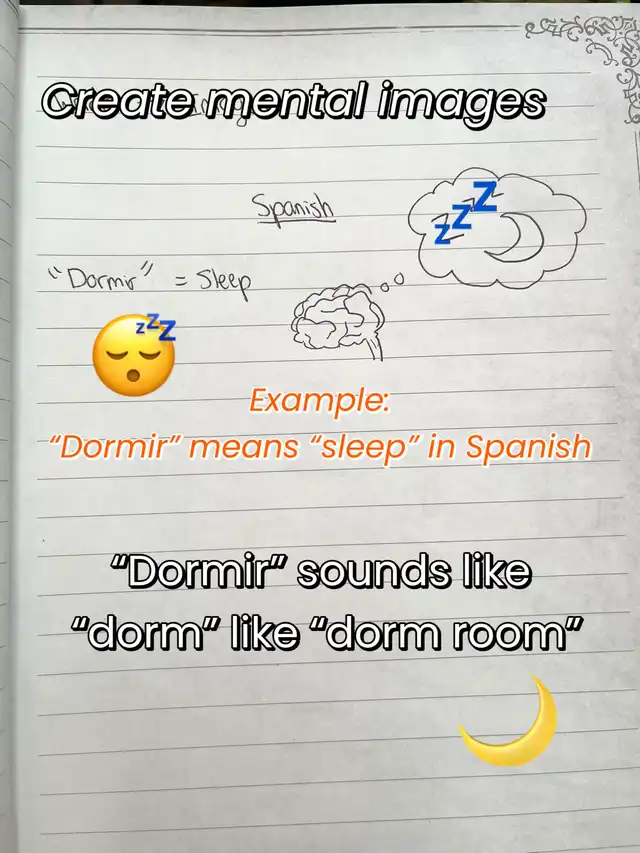 Create mental images
Spanish
zzz
"Dormir" = Sleep
zzZ
Example:
"Dormir" means "sleep" in Spanish
"Dormir" sounds like
"dorm" like "dorm room"